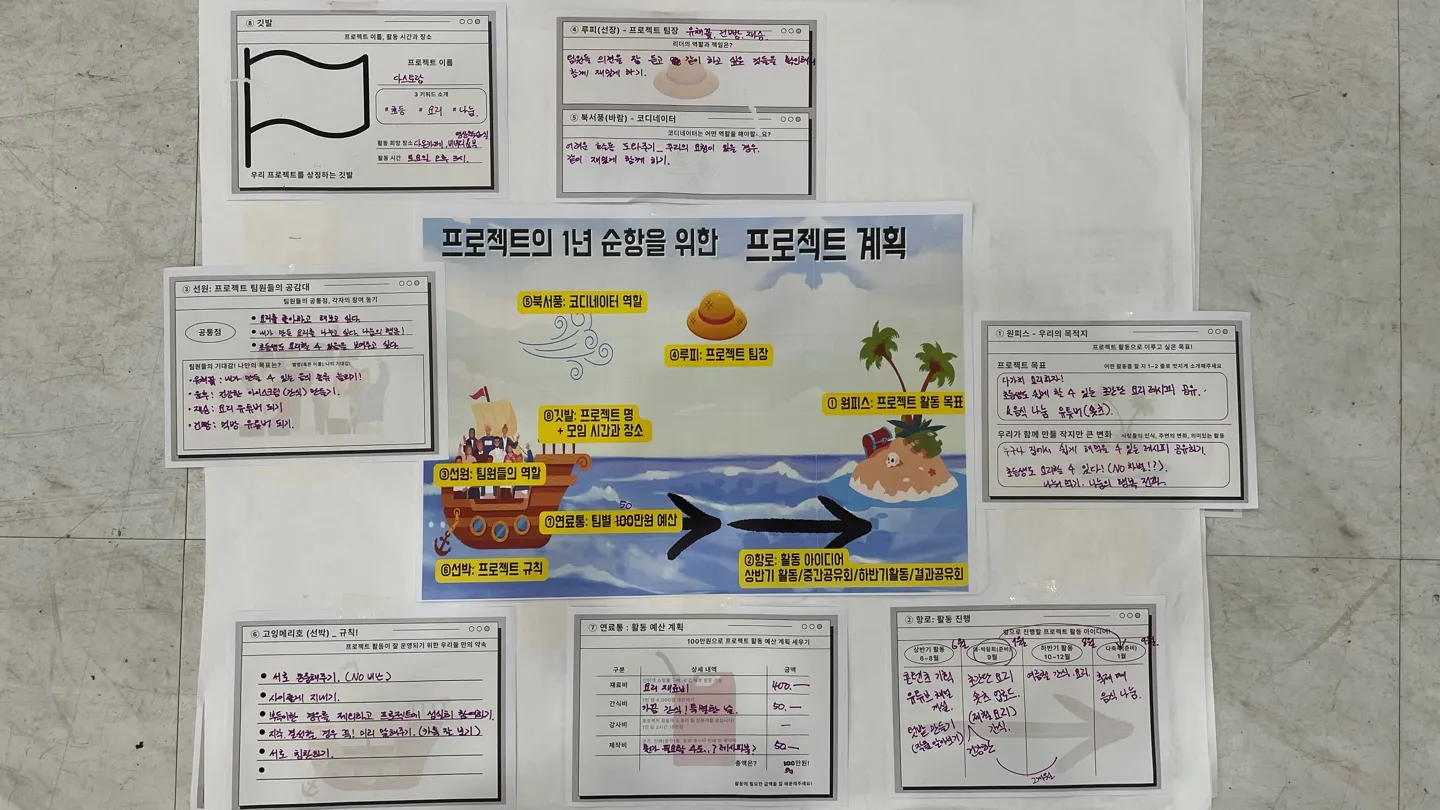 ⑧ 깃발
프로젝트 이름, 활동 시간과 장소
프로젝트 이름
다스토랑
3 키워드 소개
#초등 #요리 #나눔.
영상학습실
활동 희망 장소 다온카페,
활동 시간 토요일 오후 3시.
우리 프로젝트를 상징하는 깃발
④ 루피(선장) - 프로젝트 팀장 유해꽃, 건빵, 재승.
리더의 역할과 책임은?
팀원들 의견을 잘 듣고 같이 하고 싶은 것들을 확인해서
함께 재밌게 하기.
⑤ 북서풍(바람) - 코디네이터
코디네이터는 어떤 역할을 해야할까요?
어려운 하는 도와주기_ 우리의 요청이 있는 경우.
같이 재밌게 함께 하기.
프로젝트의 1년 순항을 위한 프로젝트 계획
⑤북서풍: 코디네이터 역할
④루피: 프로젝트 팀장
① 원피스: 프로젝트 활동 목표
⑧깃발: 프로젝트 명
+ 모임 시간과 장소
③선원: 팀원들의 역할
50
⑦연료통: 팀별 100만원 예산
⑥선박: 프로젝트 규칙
②항로: 활동 아이디어
상반기 활동/중간공유회/하반기활동/결과공유회
③ 선원: 프로젝트 팀원들의 공감대
팀원들의 공통점, 각자의 참여 동기
공통점
• 요리를 좋아하고 해보고 싶다.
• 내가 만든 요리를 나누고 싶다. 나눔의 행복!
• 초등생도 요리할 수 있음을 보여주고 싶다.
팀원들의 기대감! 나만의 목표는? 별명(혹은 이름)/나의 기대감!
• 유해꽃: 내가 만들 수 있는 음식 종류 늘리기!
: 건강한 아이스크림(간식) 만들기.
• 재승: 요리 유튜버 되기
• 건빵: 먹방 유튜버 되기.
① 원피스 - 우리의 목적지
프로젝트 활동으로 이루고 싶은 목표!
프로젝트 목표 어떤 활동을 할 지 1~2 줄로 멋지게 소개해주세요
다가치 요리하자!
초등생도 쉽게 할 수 있는 초간단 요리 레시피 공유.
& 음식 나눔 유튜버(숏츠).
우리가 함께 만들 작지만 큰 변화 사람들의 인식, 주변의 변화, 의미있는 활동
누구나 집에서 쉽게 해먹을 수 있는 레시피 공유하기.
초등생도 요리할 수 있다! (NO 차별!?).
나눠 먹기. 나눔의 행복 전파.
⑥ 고잉메리호 (선박) _ 규칙!
프로젝트 활동이 잘 운영되기 위한 우리들 만의 약속
• 서로 존중해주기. (NO 비난)
• 사이좋게 지내기.
• 부득이한 경우를 제외하고 프로젝트에 성실히 참여하기.
• 지각·결석할 경우 꼭! 미리 말해주기. (카톡 잘 보기)
• 서로 협력하기.
⑦ 연료통 : 활동 예산 계획
100만원으로 프로젝트 활동 예산 계획 세우기
구분 상세 내역 금액
재료비 요리 재료비 400.—
간식비 가끔 간식! 특별한 날. 50.—
강사비 —
제작비 뭔가 필요할 수도..? (레시피북) 50—
총액은? 100만원!
50
활동에 필요한 금액을 잘 배분해주세요!
② 항로: 활동 진행
앞으로 진행할 프로젝트 활동 아이디어!
상반기 활동
6~8월
6월
9월
하반기 활동
10~12월
8월
1월
9월.
콘텐츠 기획
유튜브 채널
개설.
초간단 요리
숏츠 업로드.
(제철 요리)
간식.
건강한
여름철 간식 요리.
음식 나눔.
2개월